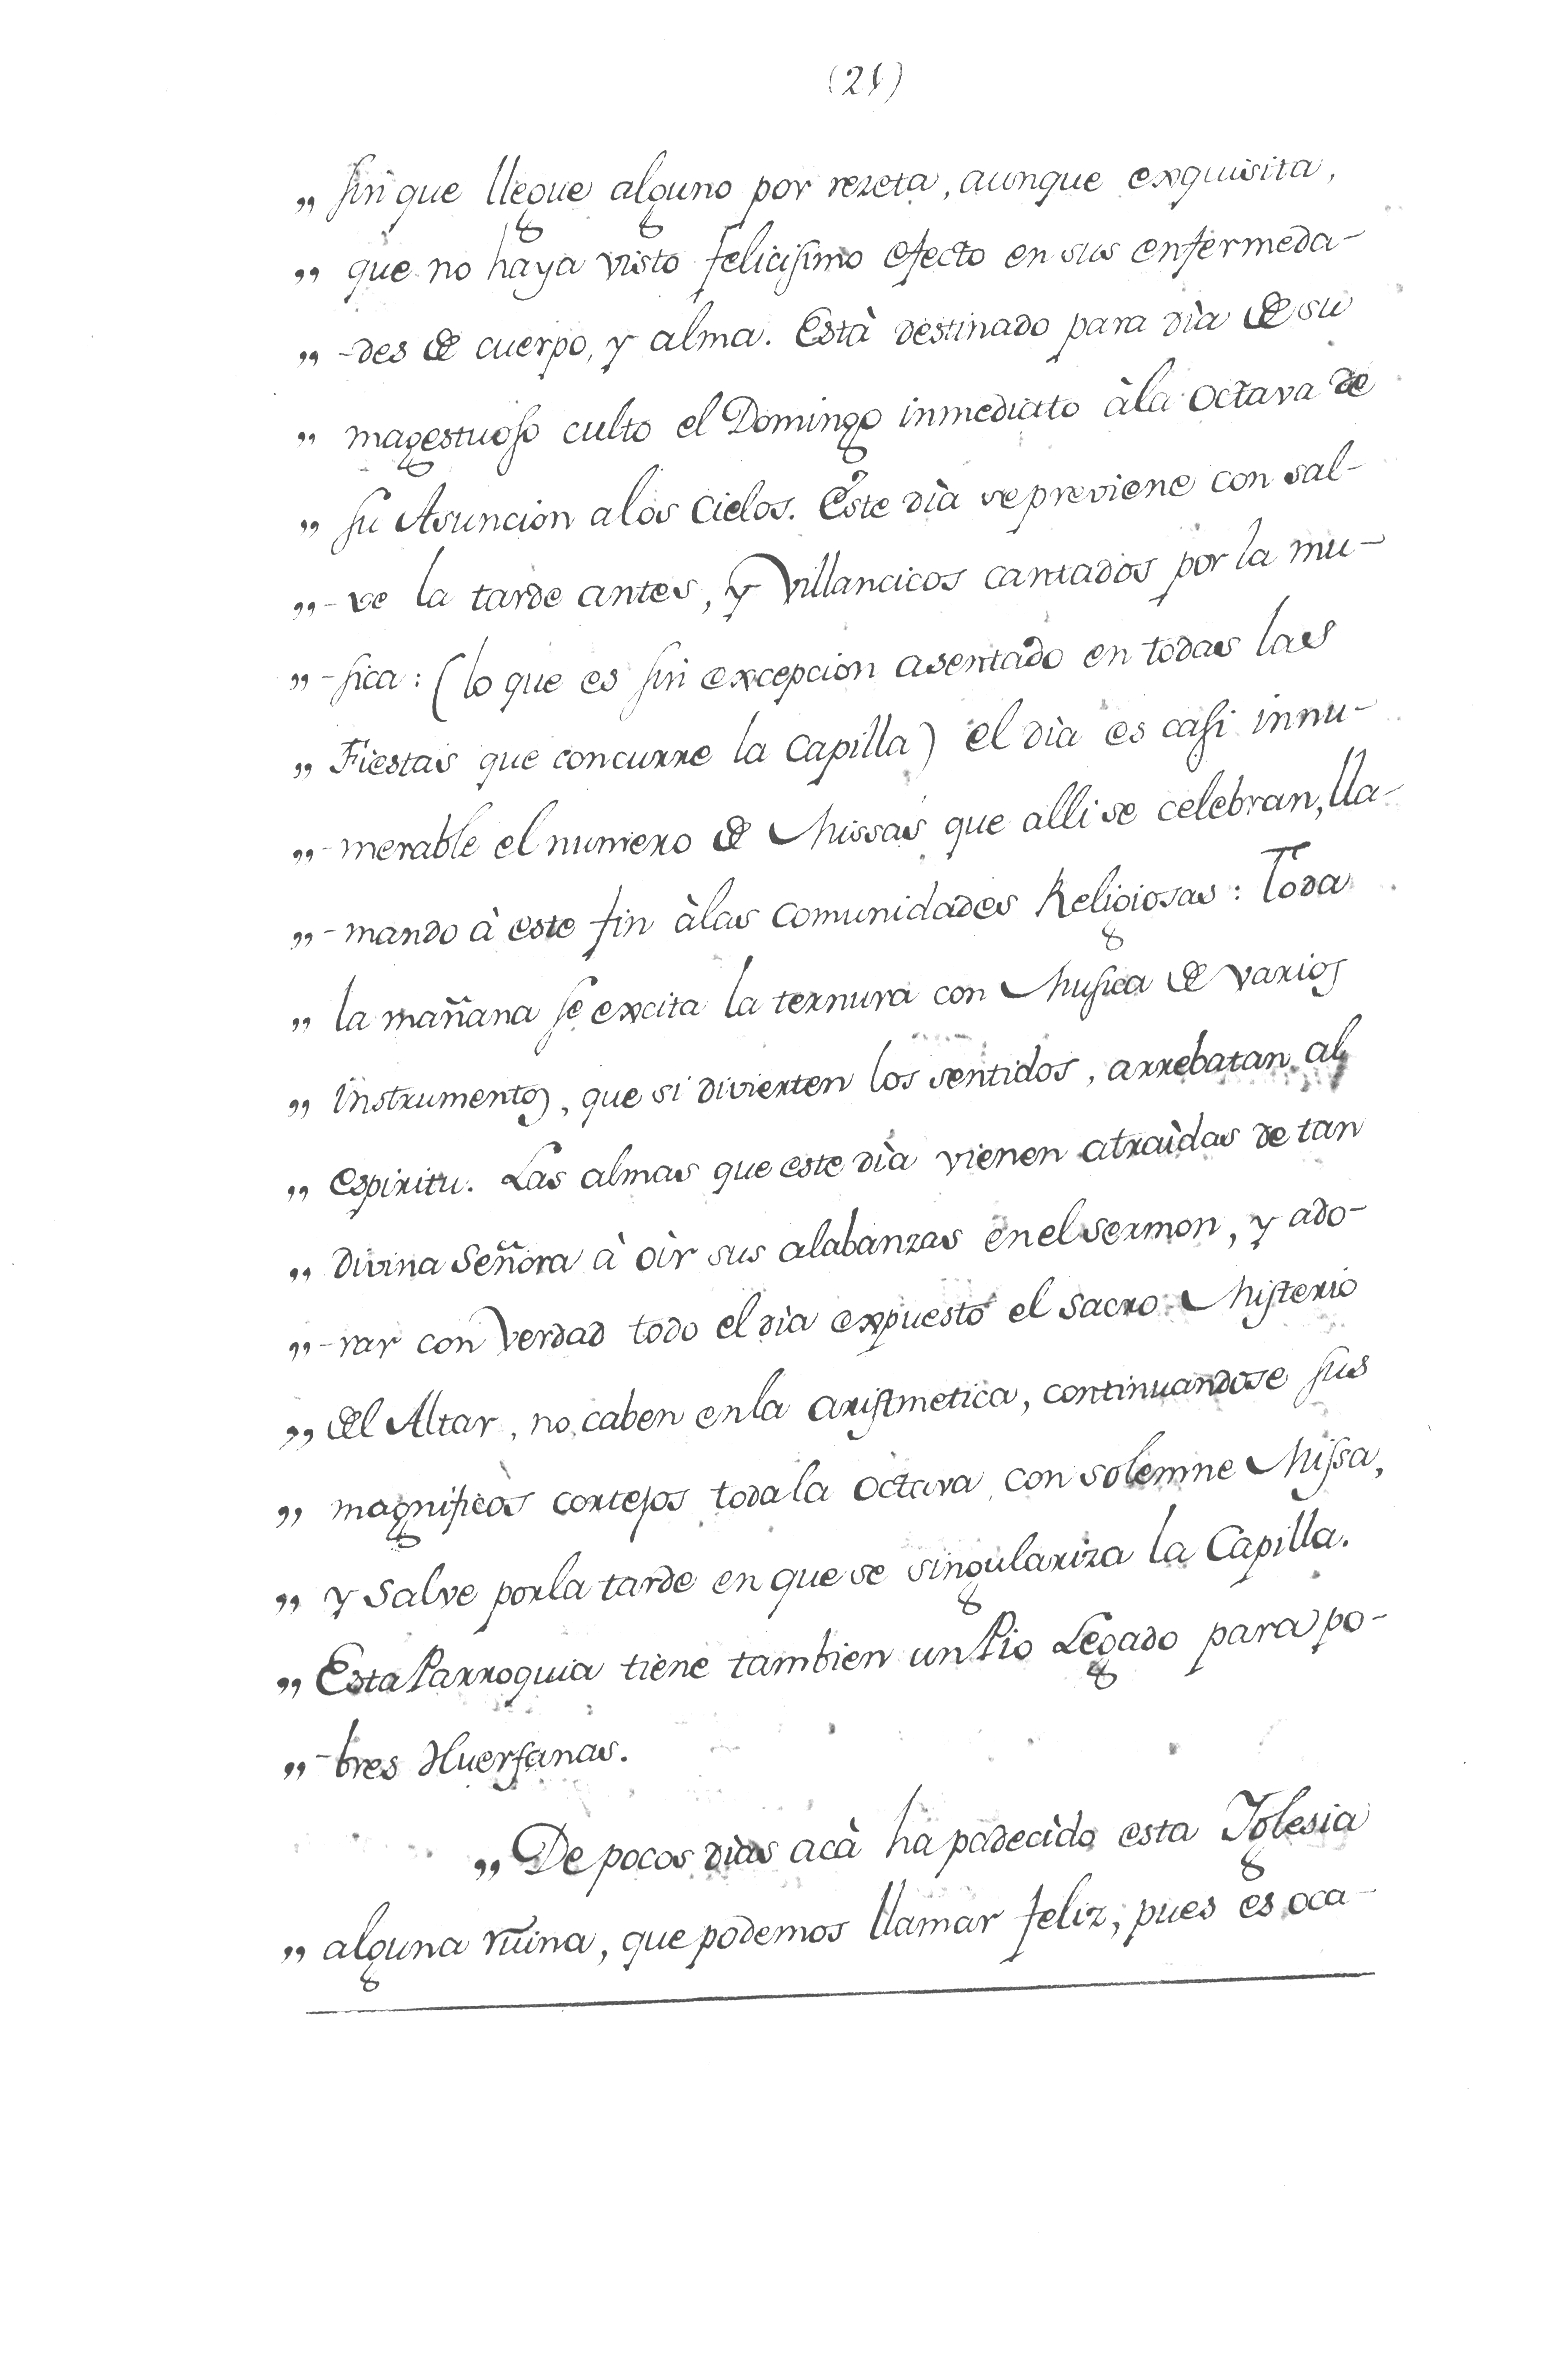 (21)
„ sin que llegue alguno por rezeta, aunque exquisita,
„ que no haya visto felicisimo efecto en sus enfermeda-
„ -des de cuerpo, y alma. Està destinado para dìa de su
„ magestuoso culto el Domingo inmediato àla Octava de
„ su Asuncion alos Cielos. Este dìa se previene con sal-
„ -ve la tarde antes, y Villancicos cantados por la mu-
„ -sica: (lo que es sin excepcion asentado en todas las
„ Fiestas que concurre la Capilla) el dìa es casi innu-
„ -merable el numero de Missas que alli se celebran, lla-
„ -mando à este fin àlas Comunidades Religiosas: Toda
„ la mañana se excita la ternura con Musica de varios
„ instrumentos, que si divierten los sentidos, arrebatan al
„ espiritu. Las almas que este dìa vienen atraìdas de tan
„ divina Señora à oìr sus alabanzas enel sermon, y ado-
„ -rar con Verdad todo el dìa expuesto el Sacro Misterio
„ del Altar, no caben enla aristmetica, continuandose sus
„ magnificos cortejos toda la octava con solemne Missa,
„ y Salve porla tarde en que se singulariza la Capilla.
„ Esta Parroquia tiene tambien un Pio Legado para po-
„ -bres Huerfanas.
„ De pocos dìas acà ha padecido esta Iglesia
„ alguna ruina, que podemos llamar feliz, pues es oca-